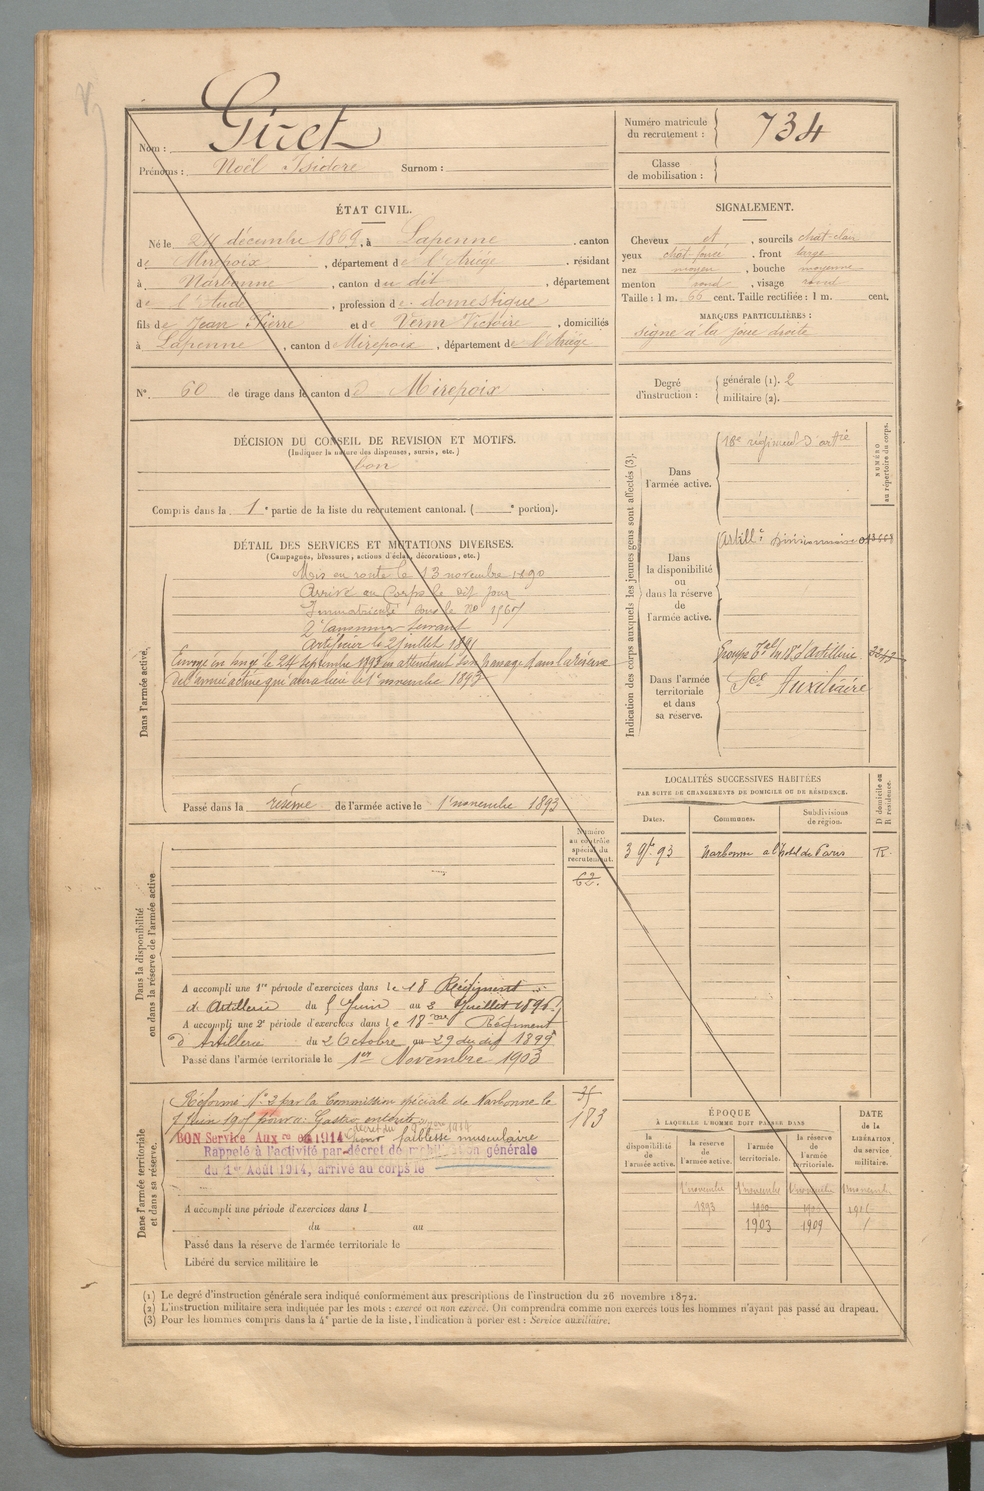 Nom : Giret
Prénoms : Noël Isidore Surnom :
Numéro matricule du recrutement : 734
Classe de mobilisation :
ÉTAT CIVIL.
Né le 24 décembre 1869, à Lapenne, canton
de Mirepoix, département de l'Ariège, résidant
à Narbonne, canton du dit, département
de l'Aude, profession de domestique
fils de Jean Pierre et de Verm Victoire, domiciliés
à Lapenne, canton de Mirepoix, département de l'Ariège
N° 60 de tirage dans le canton d Mirepoix
SIGNALEMENT.
Cheveux et, sourcils chat-clair
yeux chat foncé, front large
nez moyen, bouche moyenne
menton rond, visage rond
Taille : 1 m. 66 cent. Taille rectifiée : 1 m. cent.
MARQUES PARTICULIÈRES :
signe à la joue droite
Degré d'instruction : générale (1). 2
militaire (2).
DÉCISION DU CONSEIL DE REVISION ET MOTIFS.
(Indiquer la nature des dispenses, sursis, etc.)
bon
Compris dans la 1e partie de la liste du recrutement cantonal. ( e portion).
DÉTAIL DES SERVICES ET MUTATIONS DIVERSES.
(Campagnes, blessures, actions d'éclat, décorations, etc.)
Dans l'armée active.
Mis en route le 13 novembre 1890
Arrivé au Corps le dit jour
Immatriculé sous le no 1567
2e Canonnier servant
Artificier le 2 juillet 1891
Envoyé en congé le 24 Septembre 1893 en attendant son passage dans la réserve
de l'armée active qui aura lieu le 1er novembre 1893
Passé dans la réserve de l'armée active le 1er novembre 1893
Indication des corps auxquels les jeunes gens sont affectés (3).
NUMÉRO au répertoire du corps.
Dans l'armée active.
18e régiment d'artie
Dans la disponibilité ou dans la réserve de l'armée active.
Artillie Divisionnaire
Dans l'armée territoriale et dans sa réserve.
Groupe Tal du 18e d'Artillerie
Sce Auxiliaire
LOCALITÉS SUCCESSIVES HABITÉES
PAR SUITE DE CHANGEMENTS DE DOMICILE OU DE RÉSIDENCE.
Dates. Communes. Subdivisions de région. D domicile ou R résidence.
3 9bre 93 Narbonne à l'hôtel de Paris R.
Dans la disponibilité ou dans la réserve de l'armée active
Numéro au contrôle spécial du recrutement.
62.
A accompli une 1re période d'exercices dans le 18 Régiment
d'Artillerie du 5 Juin au 2 Juillet 1896
A accompli une 2e période d'exercices dans le 18eme Régiment
d'Artillerie du 2 Octobre au 29 du dit 1899
Passé dans l'armée territoriale le 1er Novembre 1903
Dans l'armée territoriale et dans sa réserve.
Réformé No 2 par la Commission spéciale de Narbonne le
7 Juin
183
BON Service Auxre
1914
pour faiblesse musculaire
Rappelé à l'activité par décret de mobilisation générale
du 1er Août 1914, arrivé au corps le
A accompli une période d'exercices dans l
du au
Passé dans la réserve de l'armée territoriale le
Libéré du service militaire le
ÉPOQUE
À LAQUELLE L'HOMME DOIT PASSER DANS
DATE DE LA LIBÉRATION du service militaire.
la disponibilité de l'armée active. la réserve de l'armée active. l'armée territoriale. la réserve de l'armée territoriale.
1er novembre 1er novembre 1er novembre 1er novembre
1893 1900
1903 1909
(1) Le degré d'instruction générale sera indiqué conformément aux prescriptions de l'instruction du 26 novembre 1872.
(2) L'instruction militaire sera indiquée par les mots : exercé ou non exercé. On comprendra comme non exercés tous les hommes n'ayant pas passé au drapeau.
(3) Pour les hommes compris dans la 4e partie de la liste, l'indication à porter est : Service auxiliaire.